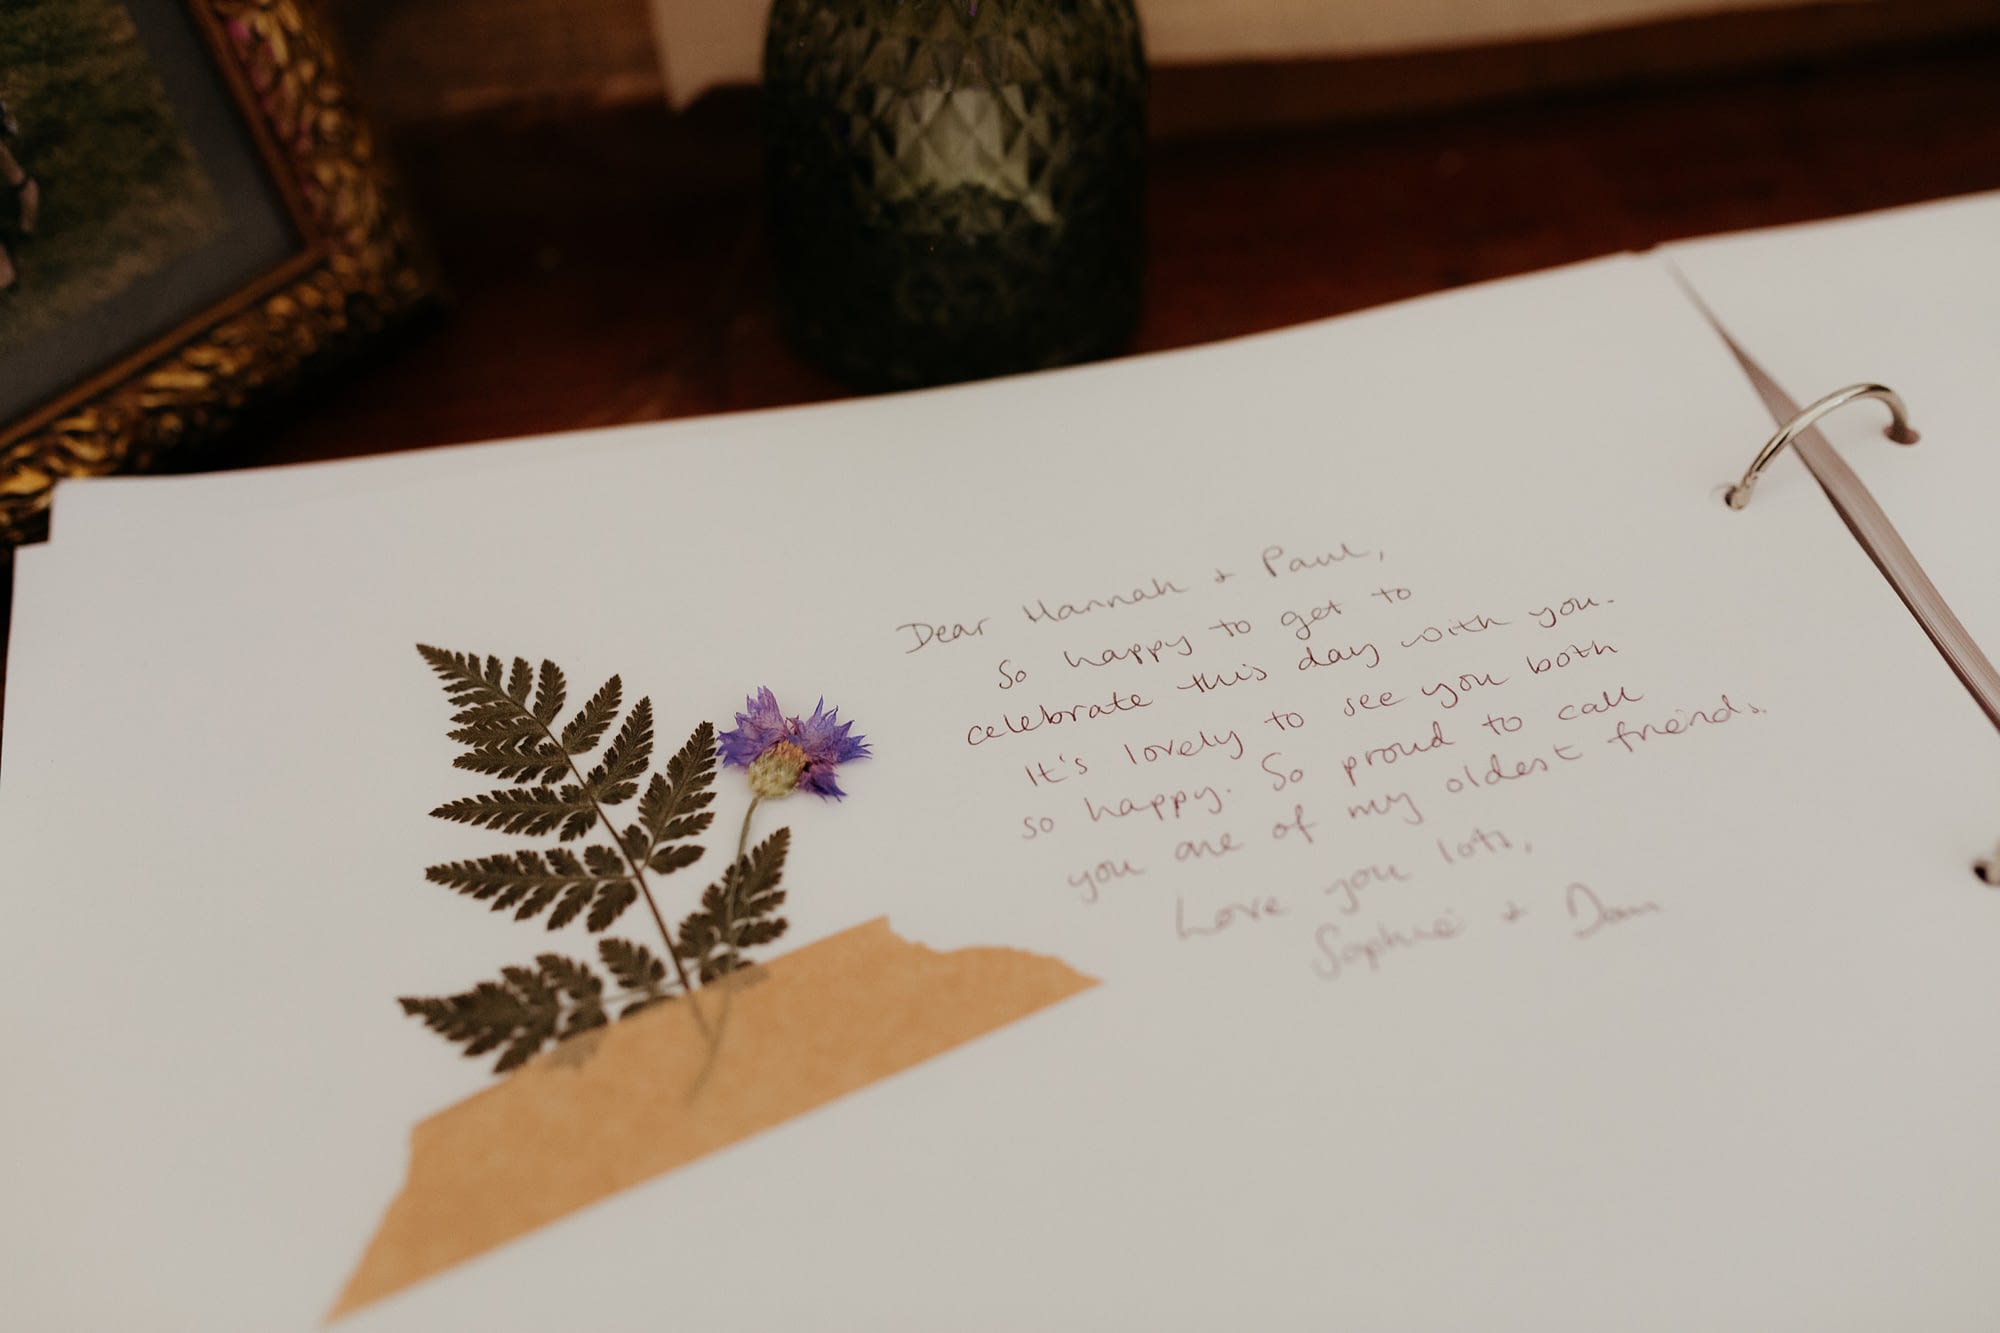 Dear Hannah + Paul,
So happy to get to
celebrate this day with you.
It's lovely to see you both
so happy. So proud to call
you one of my oldest friends.
Love you lots,
Sophie + Dan